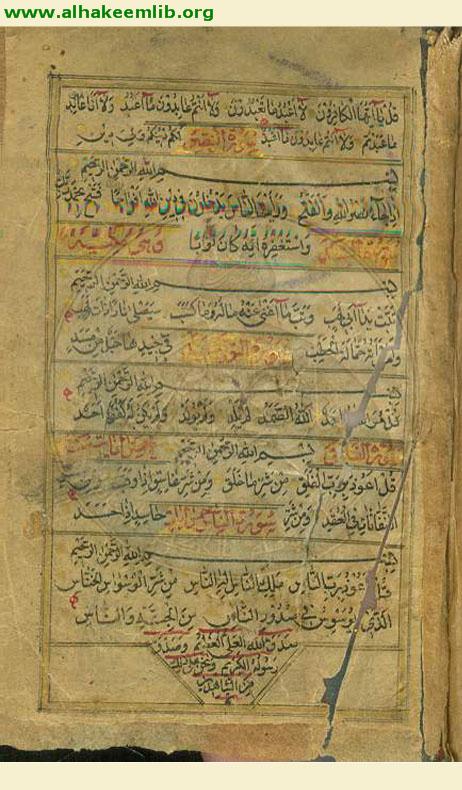 www.alhakeemlib.org
قل يا أيها الكافرون لا أعبد ما تعبدون ولا أنتم عابدون ما أعبد ولا أنا عابد
ما عبدتم ولا أنتم عابدون ما أعبد لكم دينكم ولي دين
بسم الله الرحمن الرحيم
إذا جاء نصر الله والفتح ورأيت الناس يدخلون في دين الله أفواجا فسبح بحمد ربك
واستغفره إنه كان توابا
بسم الله الرحمن الرحيم
تبت يدا أبي لهب وتب ما أغنى عنه ماله وما كسب سيصلى نارا ذات لهب
وامرأته حمالة الحطب في جيدها حبل من مسد
بسم الله الرحمن الرحيم
قل هو الله أحد الله الصمد لم يلد ولم يولد ولم يكن له كفوا أحد
بسم الله الرحمن الرحيم
قل أعوذ برب الفلق من شر ما خلق ومن شر غاسق إذا وقب ومن شر
النفاثات في العقد ومن شر حاسد إذا حسد
بسم الله الرحمن الرحيم
قل أعوذ برب الناس ملك الناس إله الناس من شر الوسواس الخناس
الذي يوسوس في صدور الناس من الجنة والناس
صدق الله العلي العظيم وصدق
رسوله الكريم ونحن على ذلك
من الشاهدين